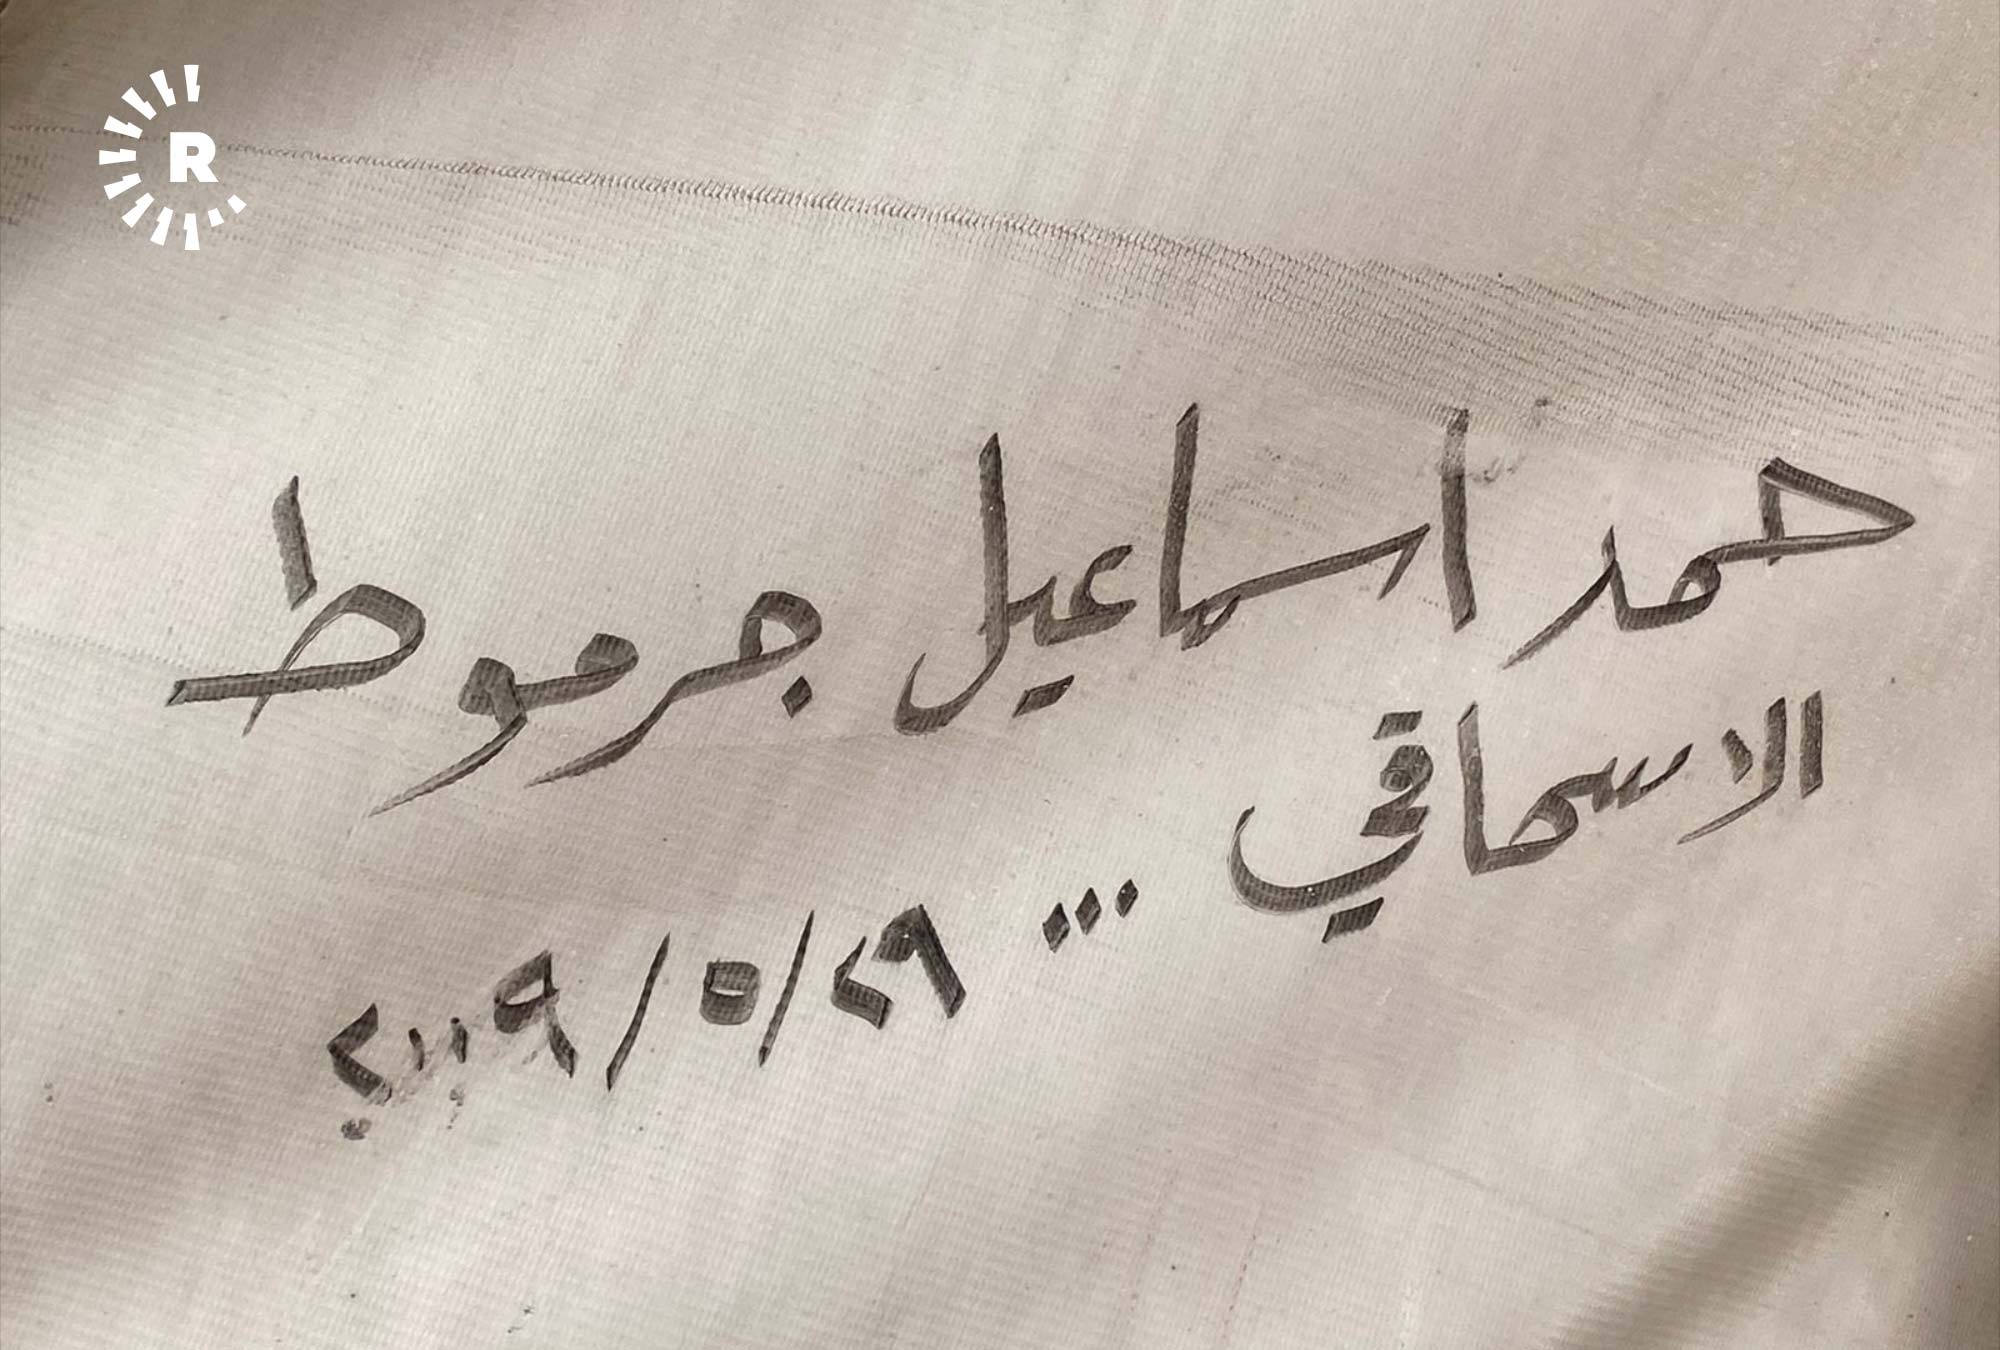 R
حمد اسماعيل جرموط
الاسحاقي
... ٢٩/٥/٢٠٠٩